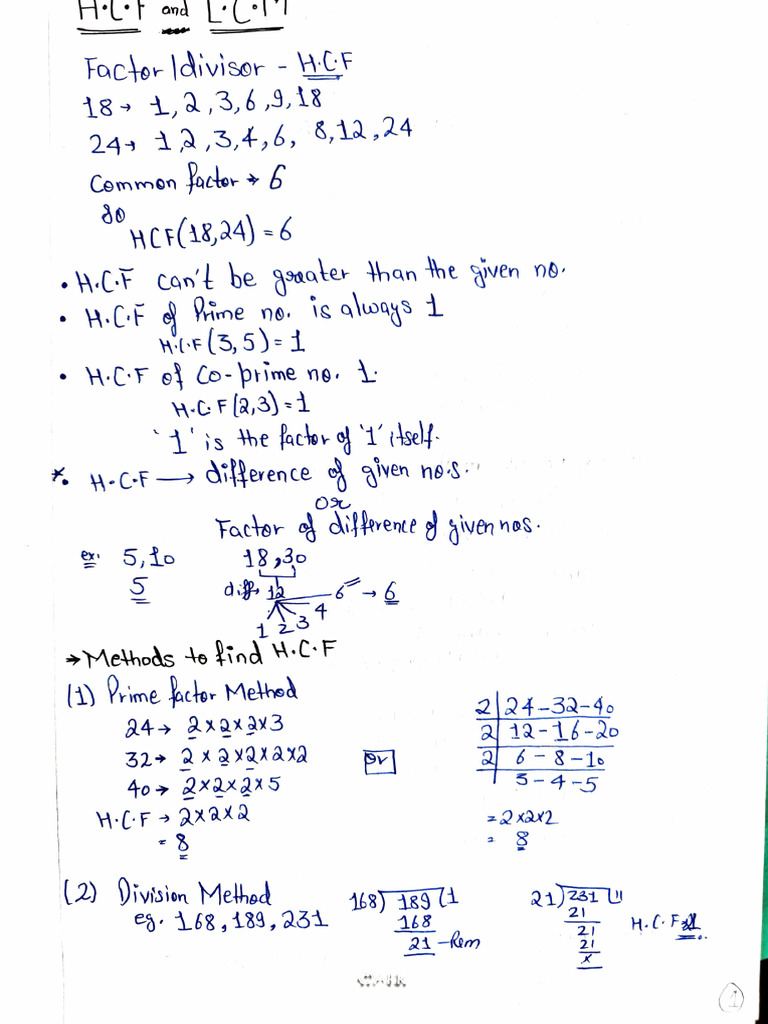 H.C.F and L.C.M
Factor/divisor - H.C.F
18→ 1, 2, 3, 6, 9, 18
24→ 1, 2, 3, 4, 6, 8, 12, 24
Common factor → 6
So
HCF(18,24) = 6
• H.C.F can't be greater than the given no.
• H.C.F of Prime no. is always 1
H.C.F (3,5) = 1
• H.C.F of Co-prime no. 1.
H.C.F (2,3) = 1
'1' is the factor of '1' itself.
*. H.C.F → difference of given no.s.
Or
Factor of difference of given nos.
ex. 5, 10 18, 30
5 diff. 12 6 → 6
1 2 3 4
→ Methods to find H.C.F
(1) Prime factor Method
24→ 2×2×2×3
32→ 2×2×2×2×2
40→ 2×2×2×5
H.C.F → 2×2×2
= 8
Or
2 | 24-32-40
2 | 12-16-20
2 | 6-8-10
3-4-5
= 2×2×2
= 8
(2) Division Method
eg. 168, 189, 231
168) 189 (1
168
21 - Rem
21) 231 (11
21
21
21
x
H.C.F
1